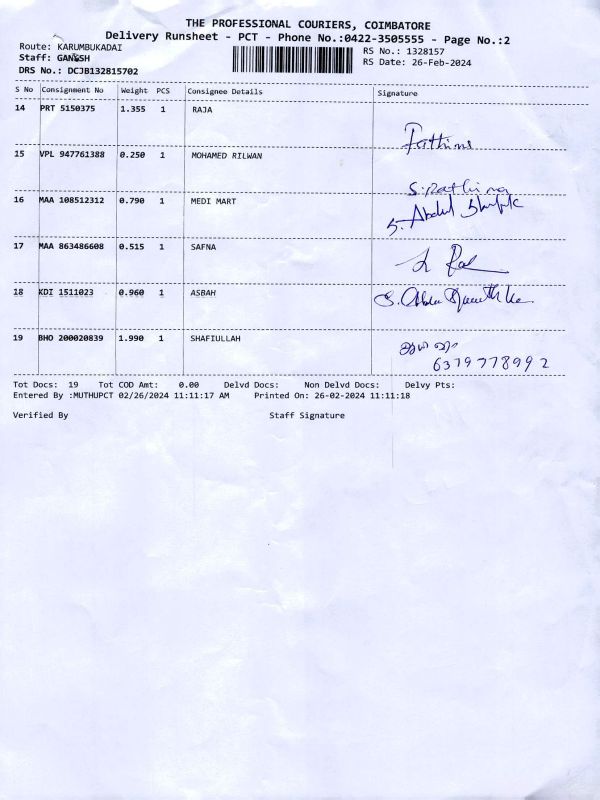 THE PROFESSIONAL COURIERS, COIMBATORE
Delivery Runsheet - PCT - Phone No.:0422-3505555 - Page No.:2
Route: KARUMBUKADAI
RS No.: 1328157
Staff: GANESH
RS Date: 26-Feb-2024
DRS No.: DCJB132815702
S No Consignment No Weight PCS Consignee Details Signature
14 PRT 5150375 1.355 1 RAJA
15 VPL 947761388 0.250 1 MOHAMED RILWAN
16 MAA 108512312 0.790 1 MEDI MART
S. Abdul
17 MAA 863486608 0.515 1 SAFNA
18 KDI 1511023 0.960 1 ASBAH
19 BHO 200020839 1.990 1 SHAFIULLAH
6379778992
Tot Docs: 19 Tot COD Amt: 0.00 Delvd Docs: Non Delvd Docs: Delvy Pts:
Entered By :MUTHUPCT 02/26/2024 11:11:17 AM Printed On: 26-02-2024 11:11:18
Verified By Staff Signature